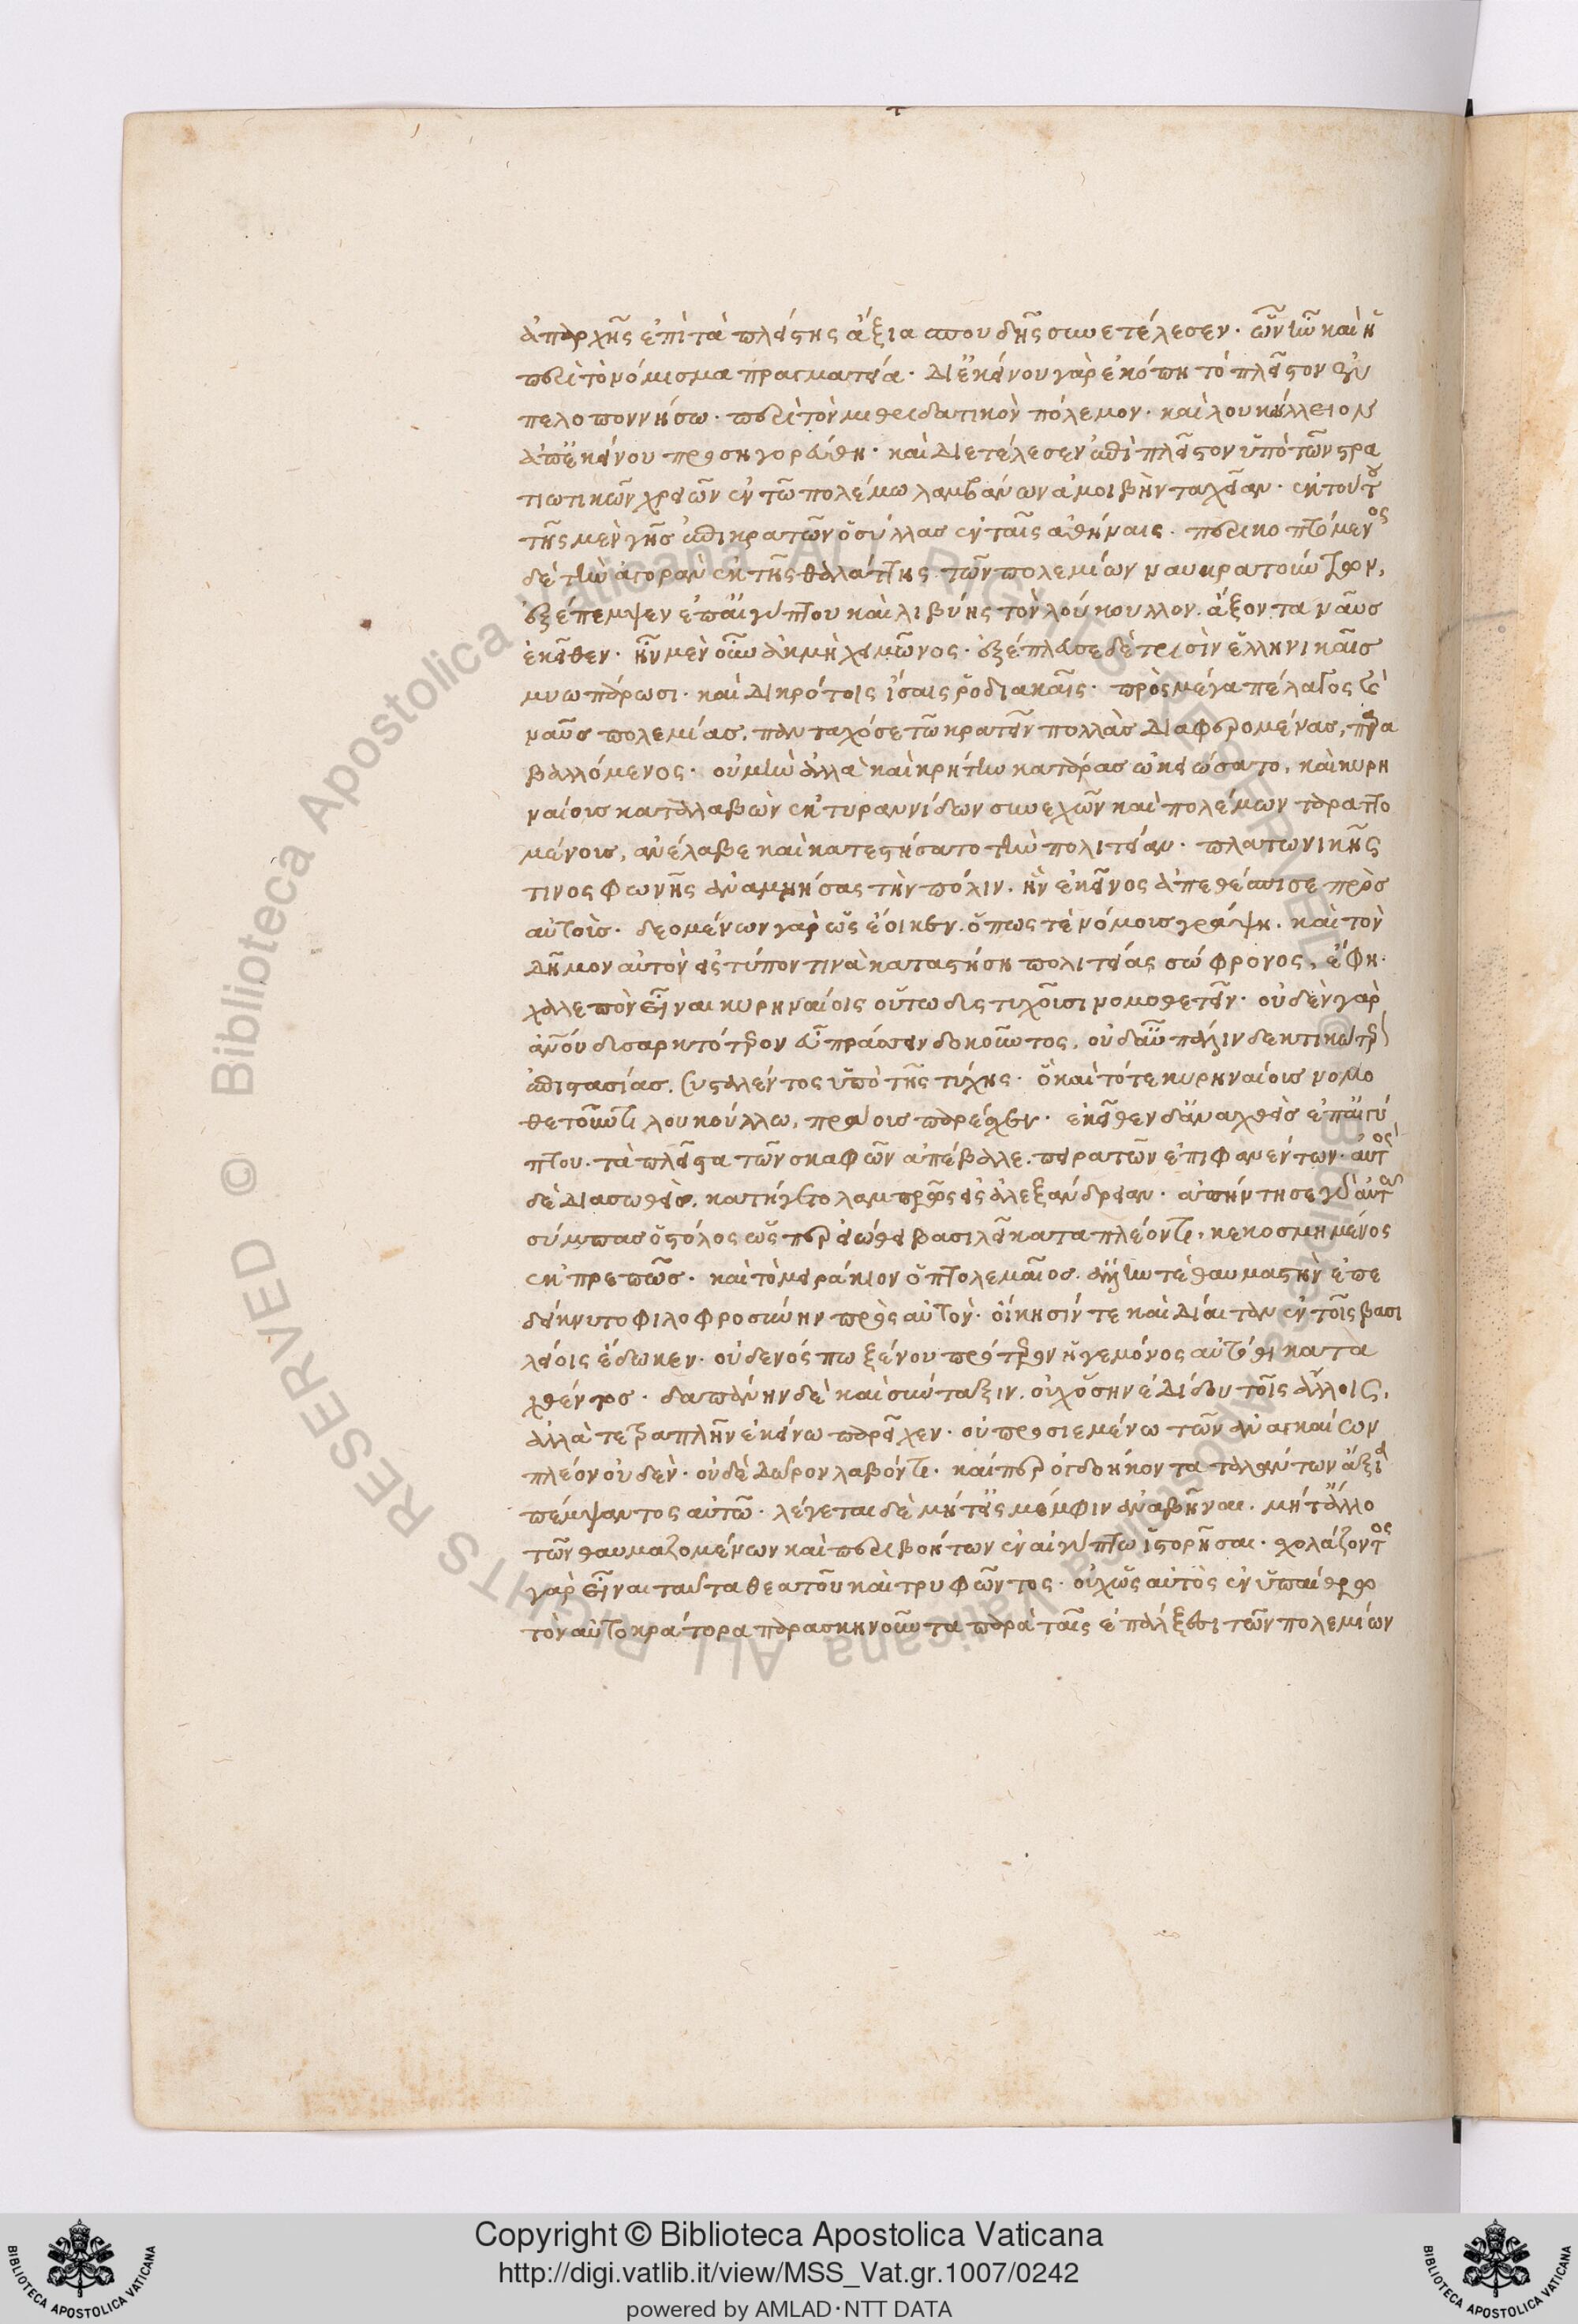 ἀπαρχῆς ἐπὶ τὰ πλείστης ἄξια σπουδῆς συνετέλεσεν· ὧν ἦν καὶ ἡ
περὶ τὸ νόμισμα πραγματεία· δι' ἐκείνου γὰρ ἐκόπη τὸ πλεῖστον ἐν
πελοποννήσω· περὶ τὸν μιθριδατικὸν πόλεμον· καὶ λουκούλλειον
ἀπ' ἐκείνου προσηγορεύθη· καὶ διετέλεσεν ἐπὶ πλεῖστον ὑπὸ τῶν στρα
τιωτικῶν χρειῶν ἐν τῶ πολέμω λαμβάνων ἀμοιβὴν ταχεῖαν· ἐκ τούτου
τῆς μὲν γῆς ἐπικρατῶν ὁ σύλλας ἐν ταῖς ἀθήναις· περικοπτόμενος
δὲ τὴν ἀγορὰν ἐκ τῆς θαλάττης τῶν πολεμίων ναυκρατούντων,
ἐξέπεμψεν ἐπ' αἰγύπτου καὶ λιβύης τὸν λούκουλλον. ἄξοντα ναῦς
ἐκεῖθεν· ἦν μὲν οὖν ἀκμὴ χειμῶνος· ἐξέπλευσε δὲ τρισὶν ἑλληνικαῖς
μυωπάρωσι· καὶ δικρότοις ἴσαις ῥοδιακαῖς· πρὸς μέγα πέλαγος καὶ
ναῦς πολεμίας, πανταχόσε τῶ κρατεῖν πολλὰς διαφερομένας, παρα
βαλλόμενος· οὐ μὴν ἀλλὰ καὶ κρήτην κατάρας ὠκειώσατο, καὶ κυρη
ναίοις καταλαβὼν ἐκ τυραννίδων συνεχῶν καὶ πολέμων ταραττο
μένοις, ἀνέλαβε καὶ κατεστήσατο τὴν πολιτείαν· πλατωνικῆς
τινος φωνῆς ἀναμνήσας τὴν πόλιν. ἣν ἐκεῖνος ἀπεθέσπισε πρὸς
αὐτοὺς· δεομένων γὰρ ὡς ἔοικεν. ὅπως τὲ νόμοις γράψη. καὶ τὸν
δῆμον αὐτὸν εἰς τύπον τινὰ καταστήση πολιτείας σώφρονος, ἔφη·
χαλεπὸν εἶναι κυρηναίοις οὕτως εὐτυχοῦσι νομοθετεῖν· οὐδὲν γὰρ
ἀνθρώπου δυσαρκτότερον εὖ πράσσειν δοκοῦντος, οὐδ' αὖ πάλιν δεκτικώτερον
ἐπιστασίας. συσταλέντος ὑπὸ τῆς τύχης· ὃ καὶ τότε κυρηναίοις νομο
θετοῦντι λουκούλλω, πράους παρέσχεν· ἐκεῖθεν δ' ἀναχθεὶς ἐπ' αἰγύ
πτου. τὰ πλεῖστα τῶν σκαφῶν ἀπέβαλε. πειρατῶν ἐπιφανέντων· αὐτὸς
δὲ διασωθεὶς, κατήγετο λαμπρῶς εἰς ἀλεξάνδρειαν· ἀπήντησε γὰρ αὐτῶ
σύμπας ὁ στόλος ὥσπερ εἰώθει βασιλεῖ καταπλέοντι, κεκοσμημένος
ἐκπρεπῶς· καὶ τὸ μειράκιον ὁ πτολεμαῖος. ἄλλην τὲ θαυμαστὴν ἐπε
δείκνυτο φιλοφροσύνην πρὸς αὐτὸν· οἴκησίν τε καὶ δίαιταν ἐν τοῖς βασι
λείοις ἔδωκεν· οὐδενός πω ξένου πρότερον ἡγεμόνος αὐτόθι κατα
χθέντος· δαπάνην δὲ καὶ σύνταξιν. οὐχ ὅσην ἐδίδου τοῖς ἄλλοις,
ἀλλὰ τετραπλῆν ἐκείνω παρεῖχεν· οὐ προσιεμένω τῶν ἀναγκαίων
πλέον οὐδὲν· οὐδὲ δῶρον λαβόντι· καίπερ ὀγδοήκοντα ταλάντων ἄξια
πέμψαντος αὐτῶ· λέγεται δὲ μήτ' εἰς μέμφιν ἀναβῆναι. μήτ' ἄλλο
τῶν θαυμαζομένων καὶ περιβοήτων ἐν αἰγύπτω ἱστορῆσαι· σχολάζοντος
γὰρ εἶναι ταῦτα θεατοῦ καὶ τρυφῶντος· οὐχ ὡς αὐτὸς ἐν ὑπαίθρω
τὸν αὐτοκράτορα παρασκηνοῦντα παρὰ ταῖς ἐπάλξεσι τῶν πολεμίων
Biblioteca Apostolica Vaticana ALL RIGHTS RESERVED © Biblioteca Apostolica Vaticana ALL RIGHTS RESERVED ©
Copyright © Biblioteca Apostolica Vaticana
http://digi.vatlib.it/view/MSS_Vat.gr.1007/0242
powered by AMLAD·NTT DATA
BIBLIOTECA APOSTOLICA VATICANA
BIBLIOTECA APOSTOLICA VATICANA